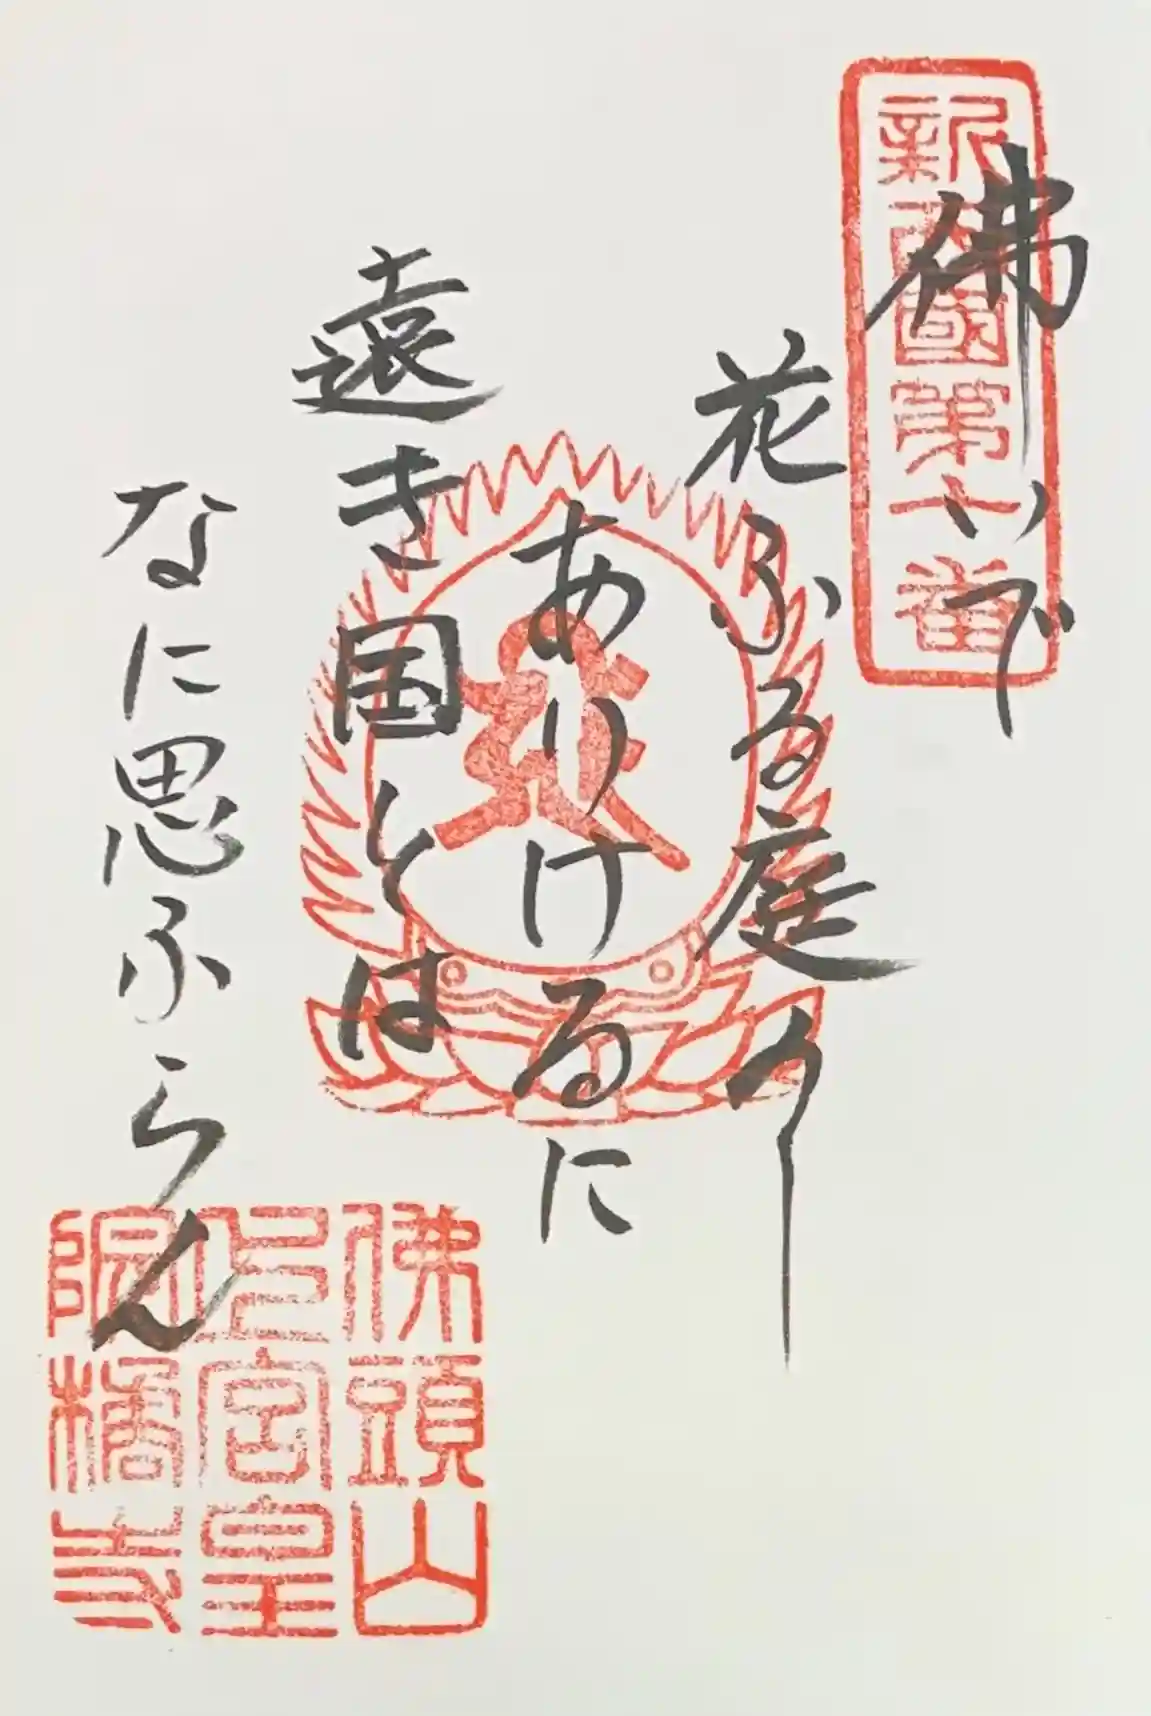 新西國第十番
佛いで
花ふる庭の
ありけるに
遠き国とは
なに思ふらん
佛頭山
上宮皇
院橘寺